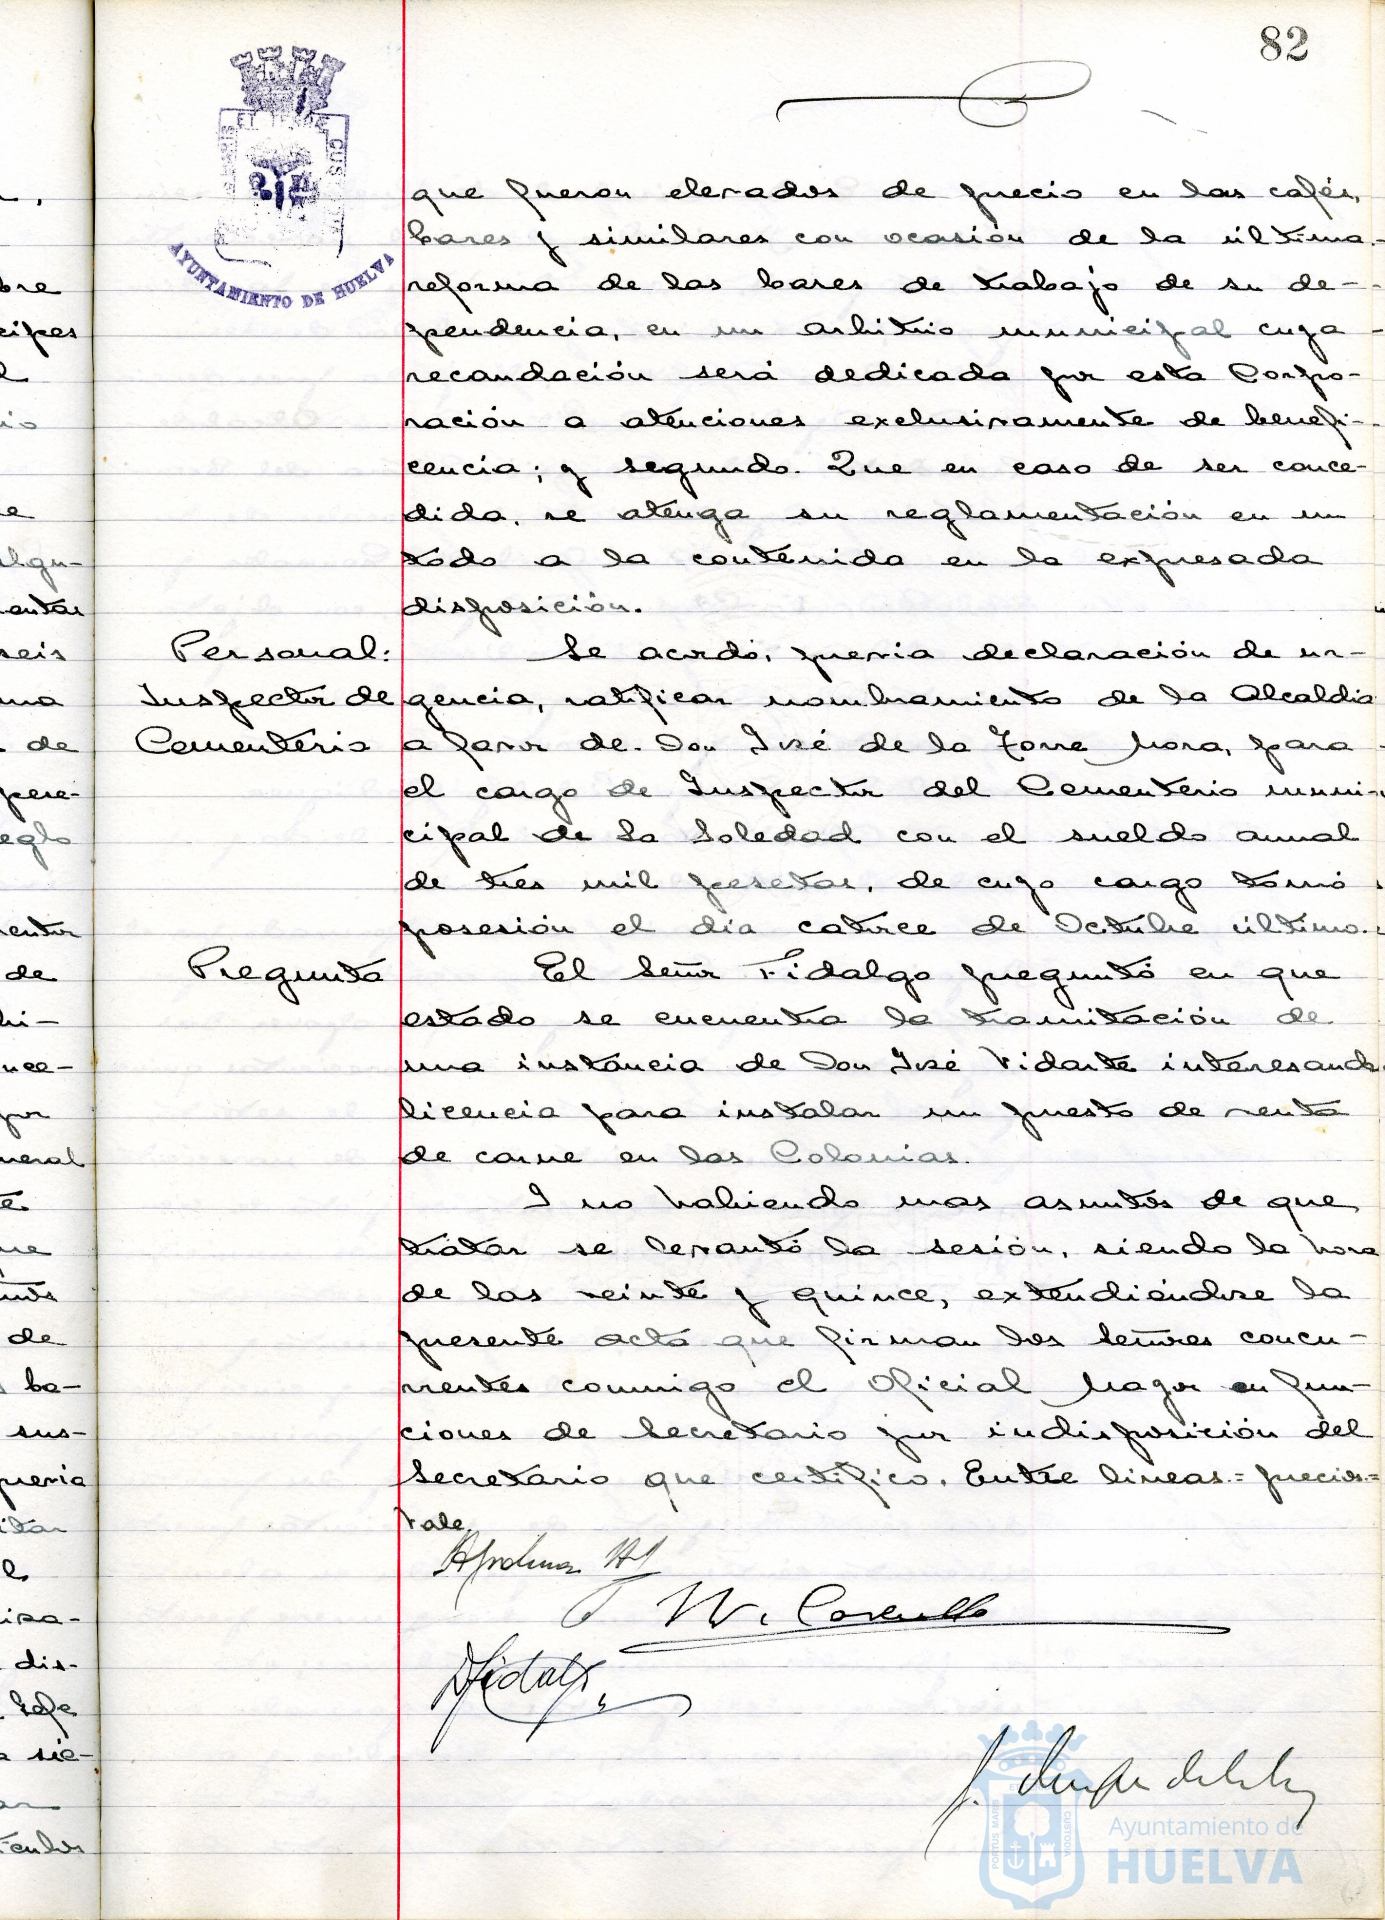 82
AYUNTAMIENTO DE HUELVA
que fueron elevados de precio en los cafés,
bares y similares con ocasión de la última
reforma de las bases de trabajo de su de-
pendencia, en un arbitrio municipal cuya
recaudación será dedicada por esta Corpo-
ración a atenciones exclusivamente de benefi-
cencia; y segundo. Que en caso de ser conce-
dida, se atenga su reglamentación en un
todo a la contenida en la expresada
disposición.
Personal:
Inspector de
Cementerio
Se acordó, previa declaración de ur-
gencia, ratificar nombramiento de la Alcaldia
a favor de Don José de la Torre Mora, para
el cargo de Inspector del Cementerio muni-
cipal de la Soledad con el sueldo anual
de tres mil pesetas, de cuyo cargo tomó
posesión el día catorce de Octubre último.
Pregunta
El Señor Fidalgo preguntó en que
estado se encuentra la tramitación de
una instancia de Don José Vidarte interesando
licencia para instalar un puesto de venta
de carne en las Colonias.
Y no habiendo mas asuntos de que
tratar se levantó la sesión, siendo la hora
de las veinte y quince, extendiéndose la
presente acta que firman los Señores concu-
rrentes conmigo el Oficial Mayor en fun-
ciones de Secretario por indisposición del
Secretario que certifico. Entre lineas = precios =
Vale.
Fidalgo
Ayuntamiento de
HUELVA
PORTUS MARIS
CUSTODIA